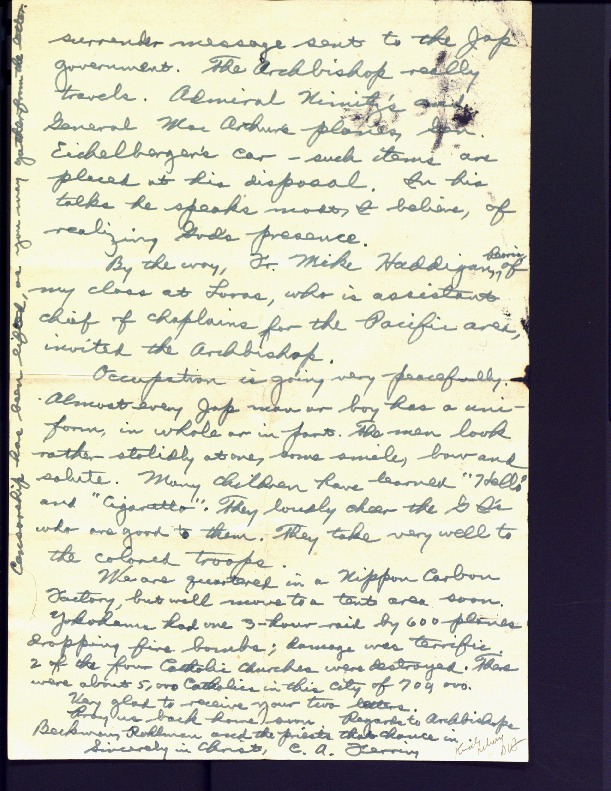 surrender message sent to the Jap
government. The Archbishop really
travels. Admiral Nimitz's and
General MacArthurs planes, Gen.
Eichelberger's car - such items are
placed at his disposal. In his
talks he speaks most, I believe, of
realizing God's presence.
By the way, Fr. Mike Haddigan, of
my class at Loras, who is assistant
chief of chaplains for the Pacific area,
invited the Archbishop.
Occupation is going very peacefully.
Almost every Jap man or boy has a uni-
form, in whole or in part. The men look
rather stolidly at one, some smile, bow and
salute. Many children have learned "Hello"
and "Cigaretto". They loudly cheer the G I's
who are good to them. They take very well to
the colored troops.
We are quartered in a Nippon Carbon
Factory, but will move to a tent area soon.
Yokohama had one 3-hour raid by 600 planes
dropping fire bombs; damage was terrific.
2 of the four Catholic Churches were destroyed. There
were about 5,000 Catholics in this city of 709 000.
Very glad to receive your two letters.
Pray us back home soon. Regards to Archbishops
Beckman, Rohlman and the priests that chance in.
Sincerely in Christ, C. A.
Censorship has been lifted, as you may gather from the letter.